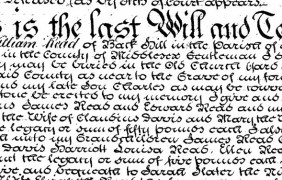 is the last Will and Te
William Read of Back Hill in the Parish of
in the County of Middlesex Gentleman I
may be buried in the Old Church Yard
and County as near to the Grave of my
and my late Son Charles as may be
to be erected to my memory I give and
James Read and Edward Read and my
the Wife of Claudius Davis and Mary the
legacy or sum of fifty pounds each
unto my Grandchildren James Read
Davis Harriott Louisa Read Ellen
the legacy or sum of five pounds each
and bequeath to Sarah Slater the
Wife and the Reverend Dav